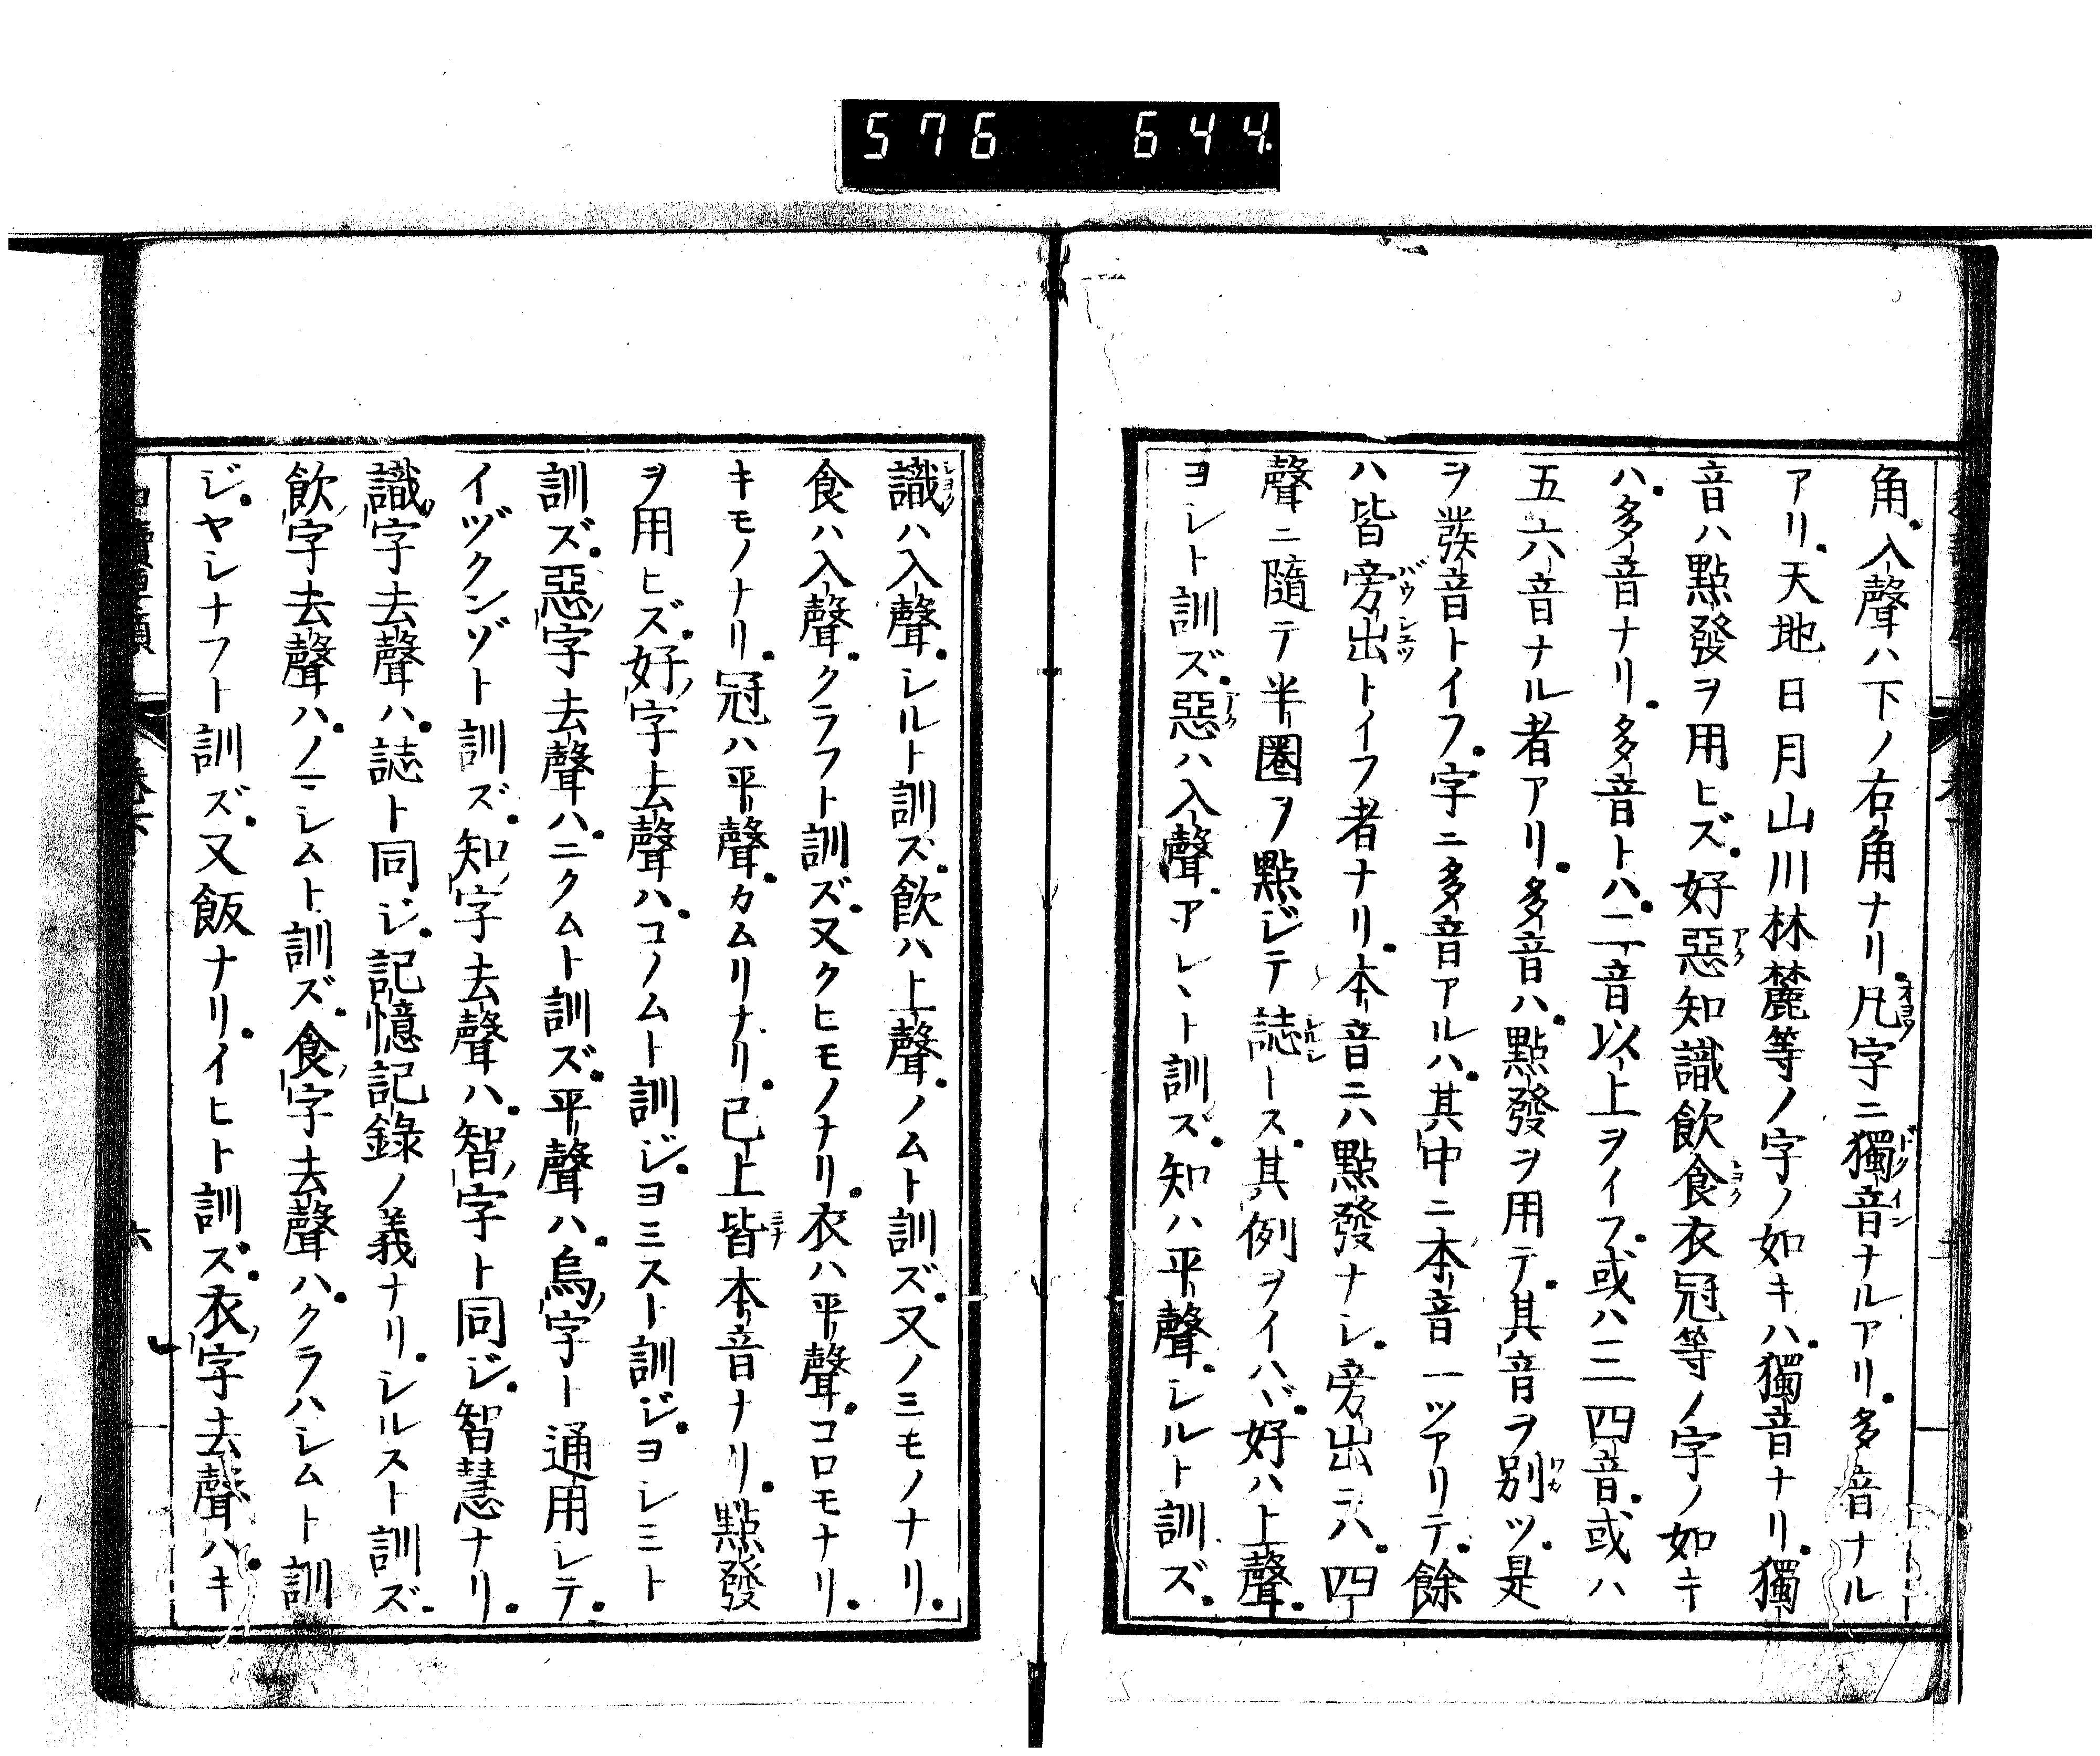 576 644
角。入聲ハ下ノ右角ナリ。凡字ニ獨音ナルアリ。多音ナル
アリ。天地日月山川林麓等ノ字ノ如キハ。獨音ナリ。獨
音ハ點發ヲ用ヒズ。好惡知識飲食衣冠等ノ字ノ如キ
ハ。多音ナリ。多音トハ。二音以上ヲイフ。或ハ三四音。或ハ
五六音ナル者アリ。多音ハ。點發ヲ用テ。其音ヲ別ツ。是
ヲ發音トイフ。字ニ多音アルハ。其中ニ本音一ツアリテ。餘
ハ皆旁出トイフ者ナリ。本音ニハ點發ナシ。旁出ニハ。四
聲ニ隨テ半圈ヲ點ジテ誌トス。其例ヲイハヾ。好ハ上聲。
ヨシト訓ズ。惡ハ入聲。アシヽト訓ズ。知ハ平聲。シルト訓ズ。
識ハ入聲。シルト訓ズ。飲ハ上聲。ノムト訓ズ。又ノミモノナリ。
食ハ入聲。クラフト訓ズ。又クヒモノナリ。衣ハ平聲。コロモナリ。
キモノナリ。冠ハ平聲。カムリナリ。已上皆本音ナリ。點發
ヲ用ヒズ。好字去聲ハ。コノムト訓ジ。ヨミスト訓ジ。ヨシミト
訓ズ。惡字去聲ハ。ニクムト訓ズ。平聲ハ。烏字ト通用シテ。
イヅクンゾト訓ズ。知字去聲ハ。智字ト同ジ。智慧ナリ。
識字去聲ハ。誌ト同ジ。記憶記錄ノ義ナリ。シルスト訓ズ。
飲字去聲ハ。ノマシムト訓ズ。食字去聲ハ。クラハシムト訓
ジ。ヤシナフト訓ズ。又飯ナリ。イヒト訓ズ。衣字去聲ハ。キ
六